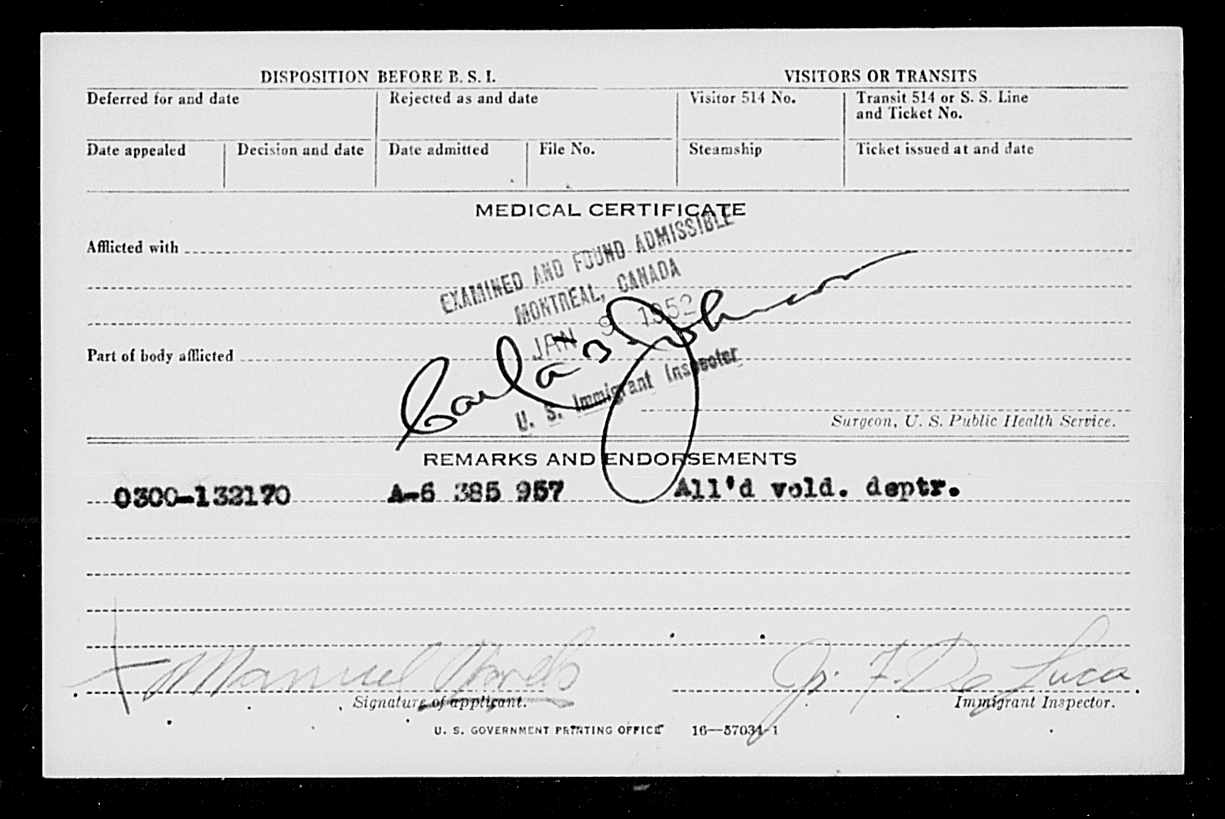 DISPOSITION BEFORE B. S. I. VISITORS OR TRANSITS
Deferred for and date Rejected as and date Visitor 514 No. Transit 514 or S. S. Line
and Ticket No.
Date appealed Decision and date Date admitted File No. Steamship Ticket issued at and date
MEDICAL CERTIFICATE
Afflicted with
EXAMINED AND FOUND ADMISSIBLE
MONTREAL, CANADA
JAN 9 1952
U. S. Immigrant Inspector
Part of body afflicted
Surgeon, U. S. Public Health Service.
REMARKS AND ENDORSEMENTS
0300-132170 A-6 385 957 All'd vold. deptr.
Manuel
F. De Luca
Signature of applicant. Immigrant Inspector.
U. S. GOVERNMENT PRINTING OFFICE 16—57034-1